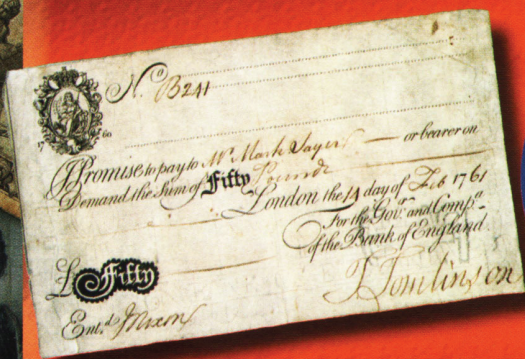 No. B241
17 60
I Promise to pay to Mr Mark Sayer or bearer on
Demand the Sum of Fifty Pounds
London the 14 day of Feb 1761
For the Govr. and Compa.
of the Bank of England.
£ Fifty
Entd. J Nixon
J Tomlinson